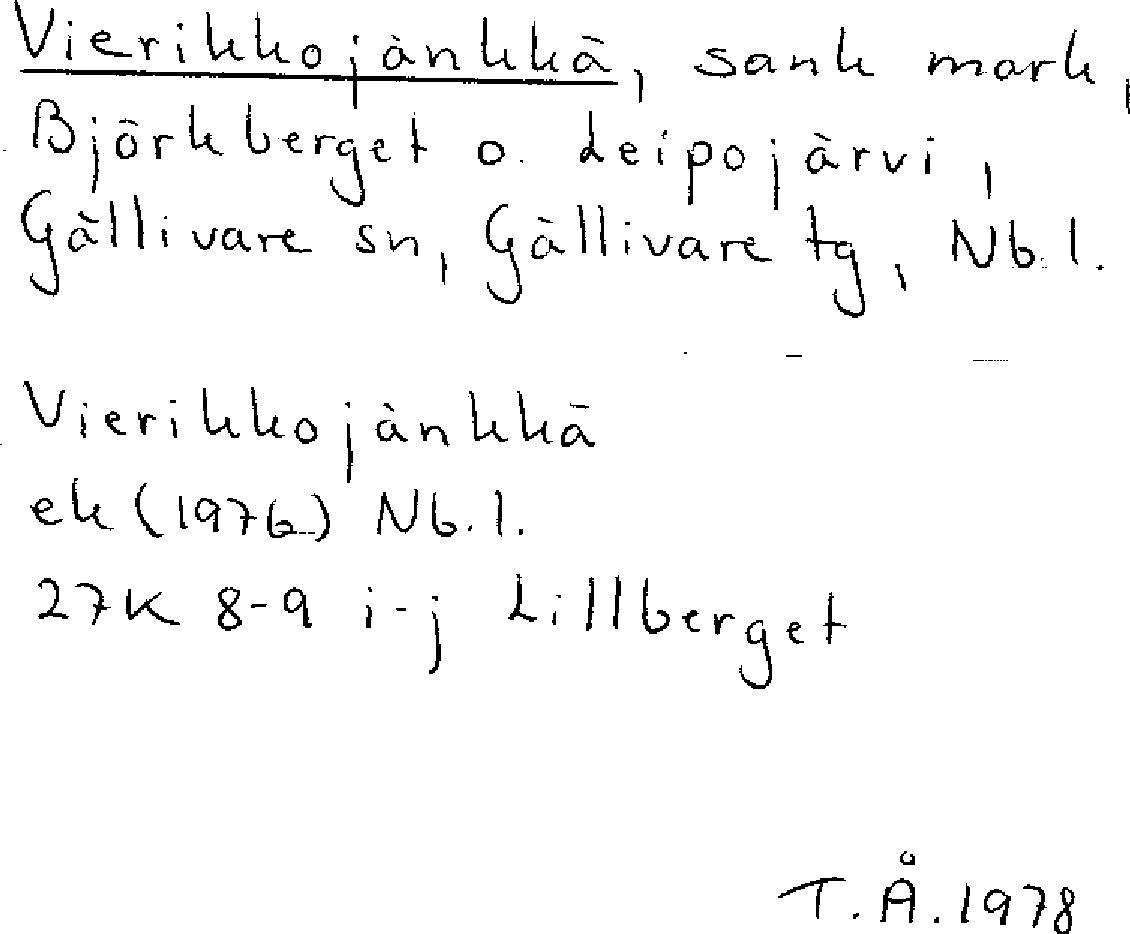 Vierikkojänkkä, sank mark,
Björkberget o. Leipojärvi,
Gällivare sn, Gällivare tg, Nb.l.
Vierikkojänkkä
ek (1976) Nb.l.
27K 8-9 i-j Lillberget
T.Å.1978